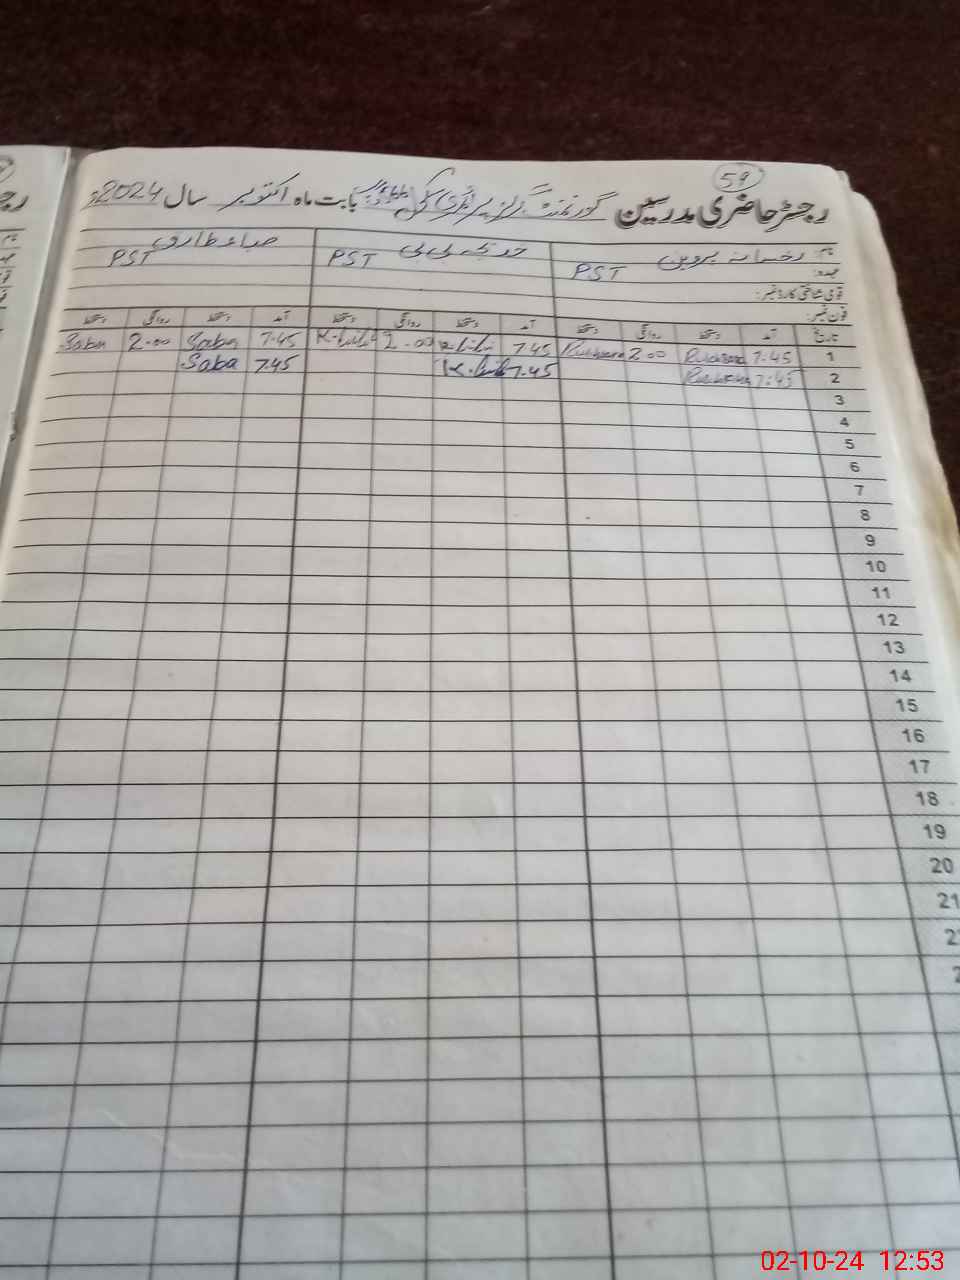 59
رجسٹر حاضری مدرسین گورنمنٹ گرلز پرائمری سکول بابت ماہ اکتوبر سال 2024ء
نام: رخسانہ پروین خدیجہ بی بی صباء طارق
عہدہ: PST PST PST
قومی شناختی کارڈ نمبر:
فون نمبر:
تاریخ آمد دستخط روانگی دستخط آمد دستخط روانگی دستخط آمد دستخط روانگی دستخط
1 7:45 Rukhsana 2.00 Rukhsana 7.45 K.bibi 2.00 K.bibi 7.45 Saba 2.00 Saba
2 7:45 Rukhsana 7.45 K.bibi 7.45 Saba
3
4
5
6
7
8
9
10
11
12
13
14
15
16
17
18
19
20
21
02-10-24 12:53